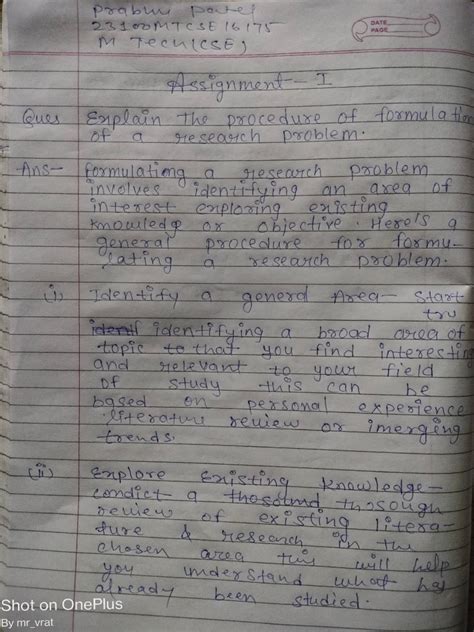 Prabhu Patel
23100MTCSE16175
M Tech (CSE)
DATE
PAGE
Assignment - I
Ques Explain The procedure of formulation
of a research problem.
Ans- formulating a research problem
involves identifying an area of
interest exploring existing
knowledge or objective. Here's a
general procedure for formu-
lating a research problem.
(i) Identify a general Area - Start
identifying a broad area of
topic to that you find interesting
and relevant to your field
of study this can be
based on personal experience
literature review or imerging
trends.
(ii) Explore Existing Knowledge -
condict a thosound thosough
review of existing litera-
ture & research in the
chosen area this will help
you understand what has
already been studied.
Shot on OnePlus
By mr_vrat